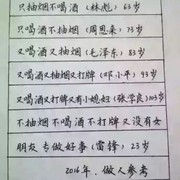 只抽烟不喝酒(林彪)63岁
只喝酒不抽烟(周恩来)73岁
又喝酒又抽烟(毛泽东)83岁
又喝酒又抽烟又打牌(邓小平)93岁
又喝酒又打牌又有小媳妇(张学良)103岁
不抽烟不喝酒不打牌又没有女
朋友 专做好事(雷锋)23岁
2016年、做人参考